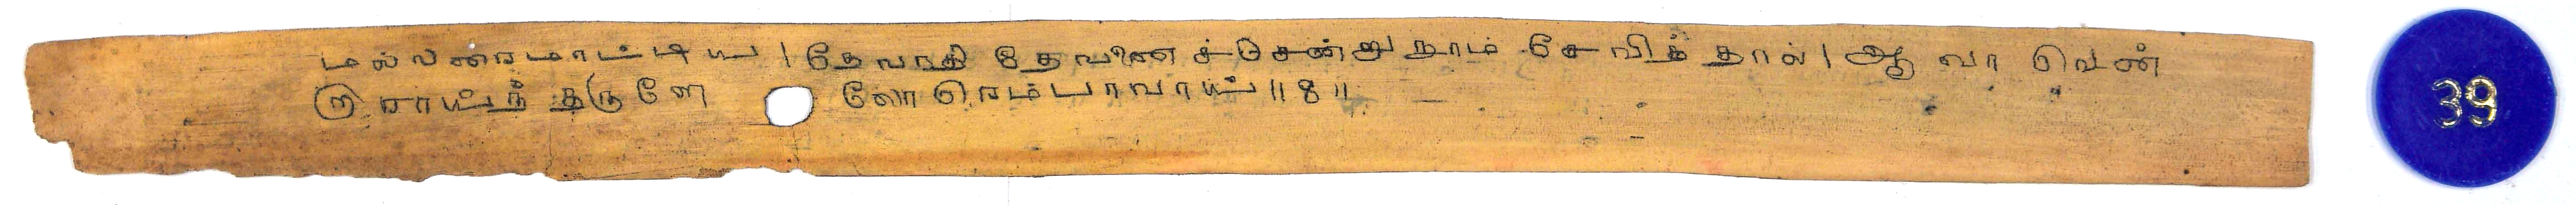 மல்லரைமாட்டிய | தேவாதி தேவனைச்சென்றுநாம் சேவித்தால் | ஆ வா வென்
றாராய்ந் தருளே லோரெம்பாவாய் || 8 ||
39